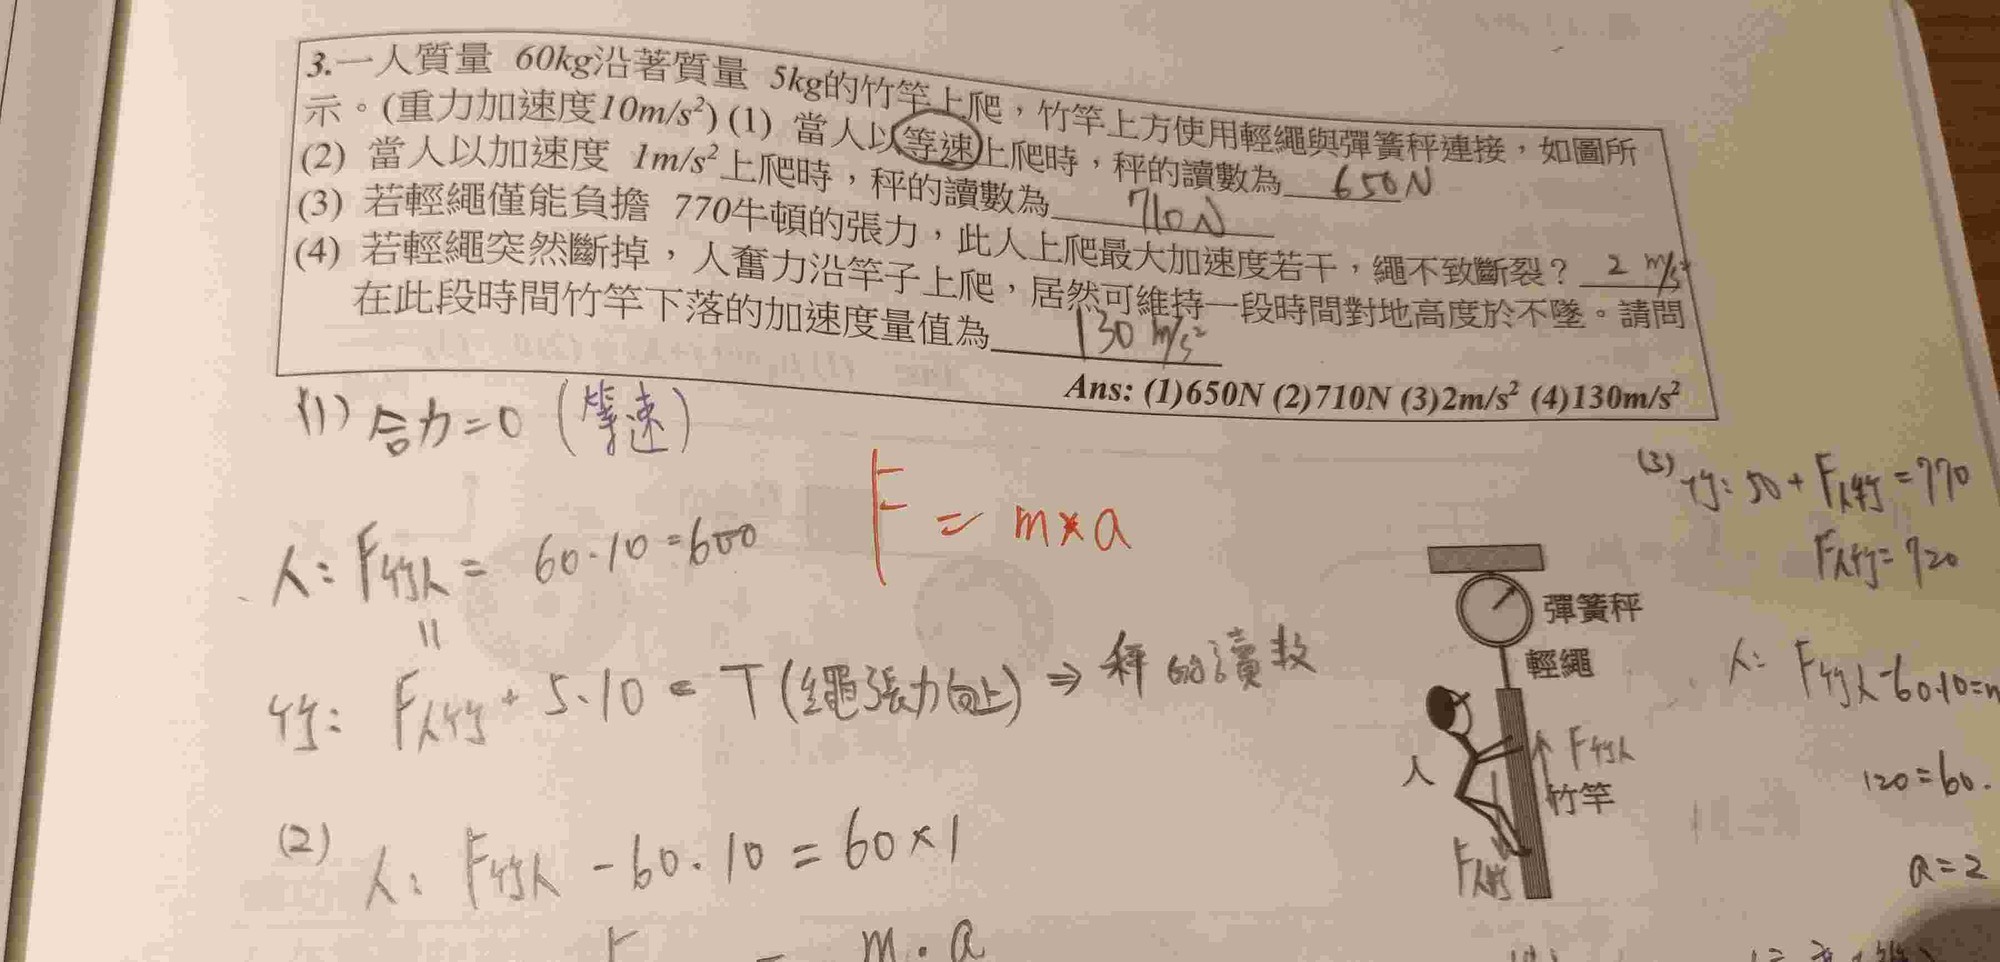 3.一人質量 60kg沿著質量 5kg的竹竿上爬，竹竿上方使用輕繩與彈簧秤連接，如圖所
示。(重力加速度10m/s²) (1) 當人以等速上爬時，秤的讀數為 650N
(2) 當人以加速度 1m/s²上爬時，秤的讀數為 710N
(3) 若輕繩僅能負擔 770牛頓的張力，此人上爬最大加速度若干，繩不致斷裂？ 2 m/s²
(4) 若輕繩突然斷掉，人奮力沿竿子上爬，居然可維持一段時間對地高度於不墜。請問
在此段時間竹竿下落的加速度量值為 130 m/s²
Ans: (1)650N (2)710N (3)2m/s² (4)130m/s²
(1) 合力=0 (等速)
F = m×a
人: F竹人 = 60·10=600
"
竹: F人竹 + 5·10 = T (繩張力向上) ⇒ 秤的讀數
(2) 人: F竹人 - 60·10 = 60×1
m·a
(3) 竹: 50 + F人竹 = 770
F人竹 = 720
人: F竹人-60·10=m
120=60·
a=2
彈簧秤
輕繩
人
F竹人
竹竿
F人竹